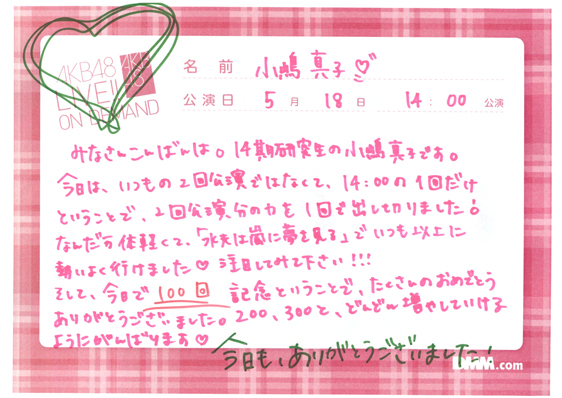 AKB48
LIVE!!
ON DEMAND
AKB
48
名前 小嶋真子♡
公演日 5月 18日 14:00 公演
みなさんこんばんは。14期研究生の小嶋真子です。
今日は、いつもの2回公演ではなくて、14:00の1回だけ
ということで、2回公演分の力を1回で出し切りました!
なんだか体軽くて、「水夫は嵐に夢を見る」でいつも以上に
勢いよく行けました♡ 注目してみて下さい!!!
そして、今日で100回記念ということで、たくさんのおめでとう
ありがとうございました。200、300と、どんどん増やしていける
ようにがんばります♡
今日も、ありがとうございました!
DMM.com